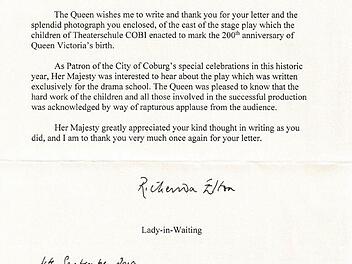 The Queen wishes me to write and thank you for your letter and the
splendid photograph you enclosed, of the cast of the stage play which the
children of Theaterschule COBI enacted to mark the 200th anniversary of
Queen Victoria's birth.
As Patron of the City of Coburg's special celebrations in this historic
year, Her Majesty was interested to hear about the play which was written
exclusively for the drama school. The Queen was pleased to know that the
hard work of the children and all those involved in the successful production
was acknowledged by way of rapturous applause from the audience.
Her Majesty greatly appreciated your kind thought in writing as you
did, and I am to thank you very much once again for your letter.
Richenda Elton
Lady-in-Waiting